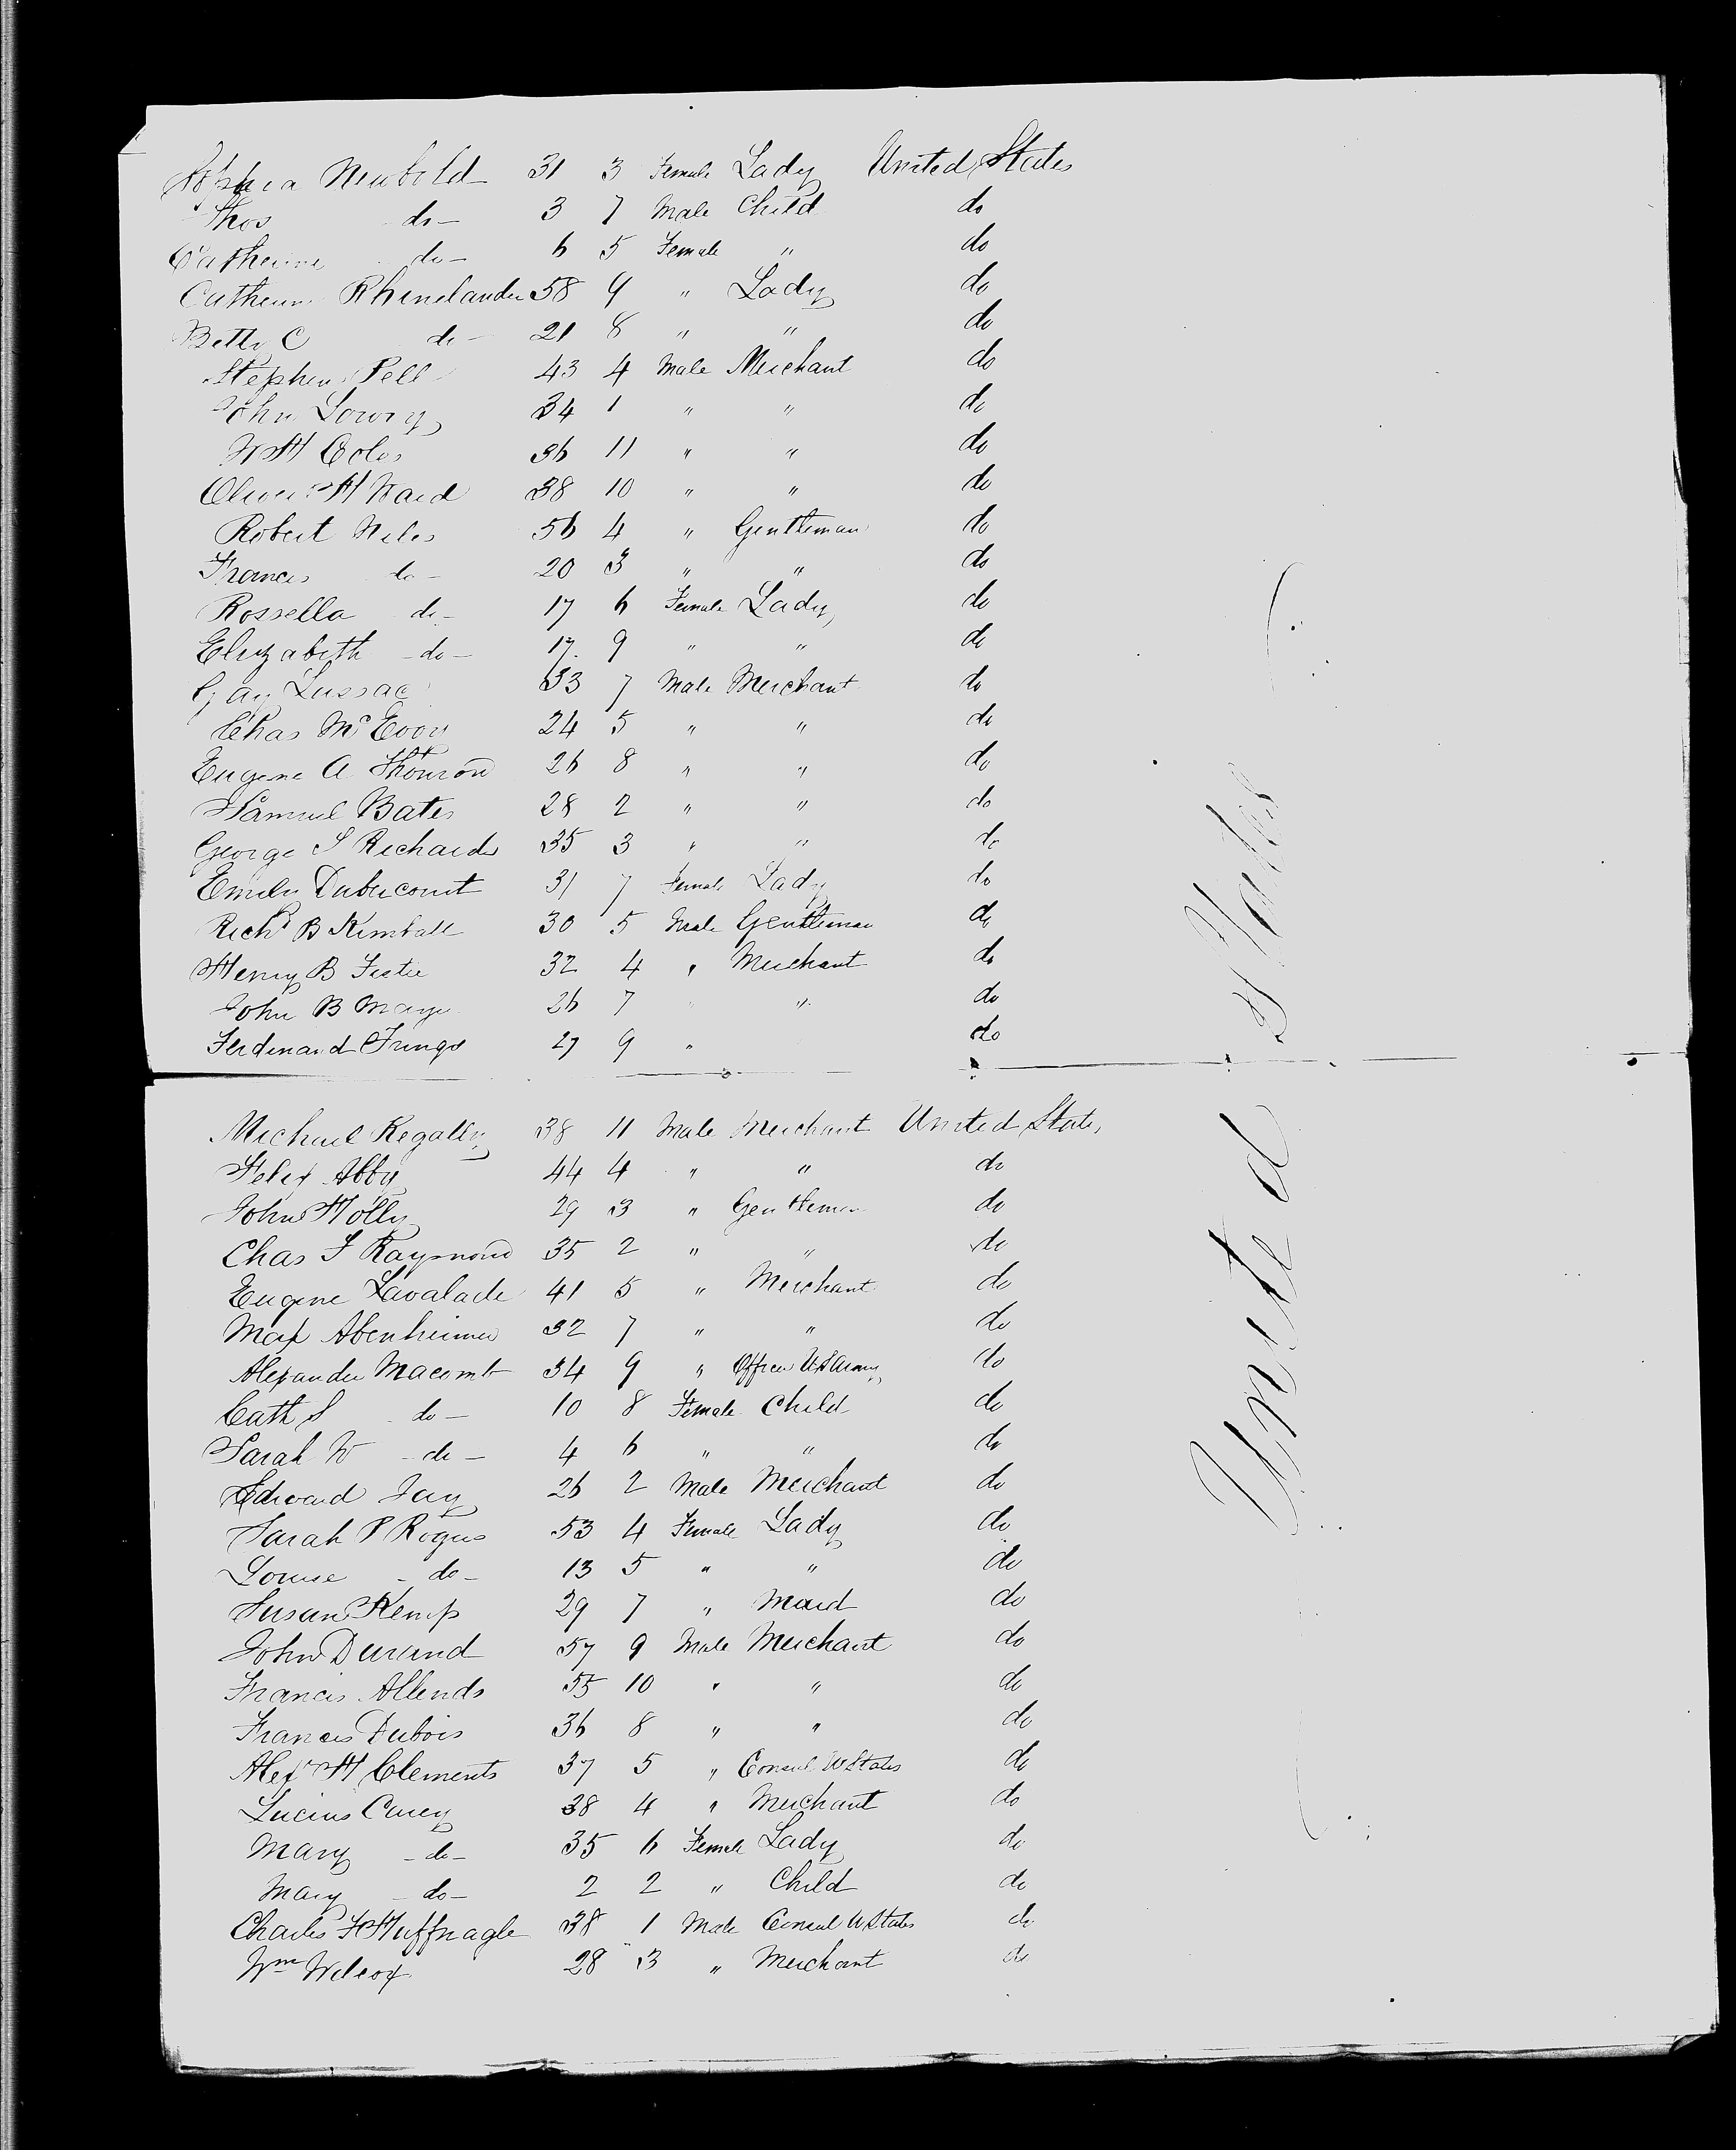 Sophia Newbold 31 3 Female Lady United States
Thos do 3 7 Male Child do
Catherine do 6 5 Female " do
Catherine Rhinelander 58 9 " Lady do
Betty C do 21 8 " " do
Stephen Pell 43 4 Male Merchant do
John Lowry 34 1 " " do
W H Coles 36 11 " " do
Oliver H Ward 38 10 " " do
Robert Niles 56 4 " Gentleman do
Francis do 20 3 " " do
Rossella do 17 6 Female Lady do
Elizabeth do 17 9 " " do
Gay Lussac 33 7 Male Merchant do
Chas McEvoy 24 5 " " do
Eugene A Thouron 26 8 " " do
Samuel Bates 28 2 " " do
George S Richards 35 3 " " do
Emily Dubucourt 31 7 Female Lady do
Richd B Kimball 30 5 Male Gentleman do
Henry B 32 4 " Merchant do
John B Mays 26 7 " do
Ferdinand Frings 27 9 " do
Michael Regally 38 11 Male Merchant United States
Felix Abby 44 4 " " do
John Holly 29 3 " Gentleman do
Chas F Raymond 35 2 " " do
Eugene Lavalade 41 5 " Merchant do
Max Abenheimer 32 7 " " do
Alexander Macomb 34 9 " Officer US Army do
Cath S do 10 8 Female Child do
Sarah W do 4 6 " " do
Edward Jay 26 2 Male Merchant do
Sarah P Rogers 53 4 Female Lady do
Louise do 13 5 " " do
Susan Kemp 29 7 " Maid do
John Durand 57 9 Male Merchant do
Francis Allends 55 10 " " do
Francis Dubois 36 8 " " do
Alexr H Clements 37 5 " Consul U States do
Lucius Carey 38 4 " Merchant do
Mary do 35 6 Female Lady do
Mary do 2 2 " Child do
Charles Huffnagle 38 1 Male Consul U States do
Wm Wilcox 28 3 " Merchant do
United States